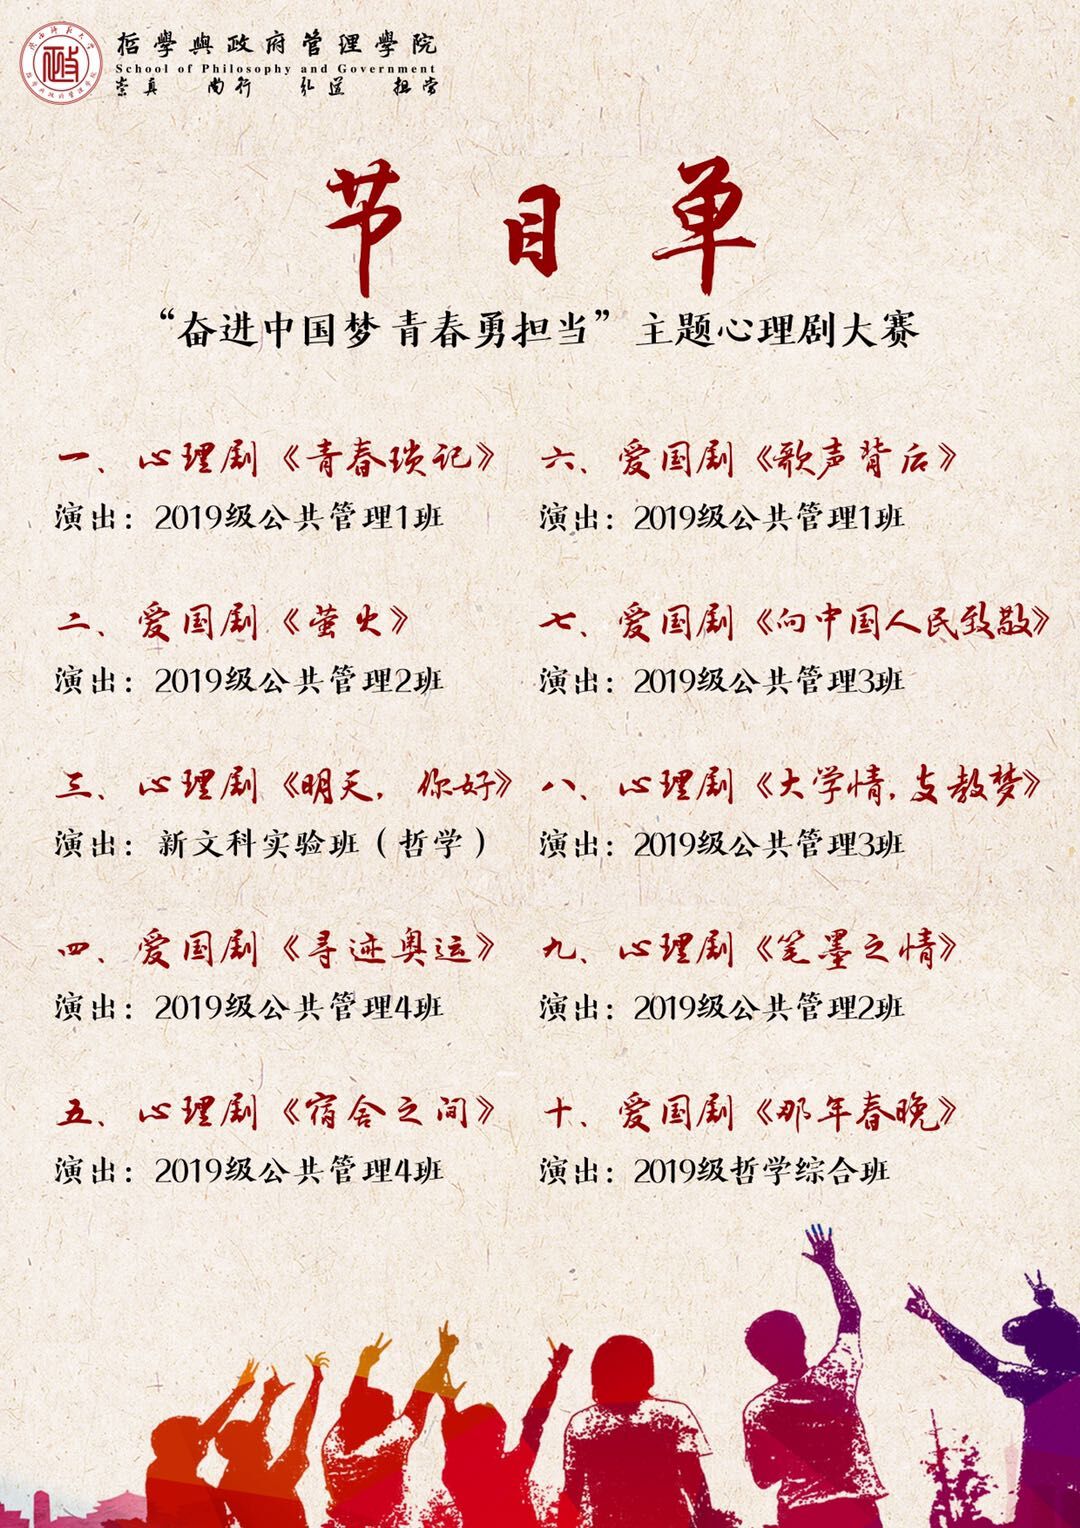 哲學與政府管理學院
School of Philosophy and Government
崇真 尚行 弘道 担当
节目单
“奋进中国梦 青春勇担当”主题心理剧大赛
一、心理剧《青春琐记》
演出：2019级公共管理1班
二、爱国剧《萤火》
演出：2019级公共管理2班
三、心理剧《明天，你好》
演出：新文科实验班（哲学）
四、爱国剧《寻迹奥运》
演出：2019级公共管理4班
五、心理剧《宿舍之间》
演出：2019级公共管理4班
六、爱国剧《歌声背后》
演出：2019级公共管理1班
七、爱国剧《向中国人民致敬》
演出：2019级公共管理3班
八、心理剧《大学情，支教梦》
演出：2019级公共管理3班
九、心理剧《笔墨之情》
演出：2019级公共管理2班
十、爱国剧《那年春晚》
演出：2019级哲学综合班